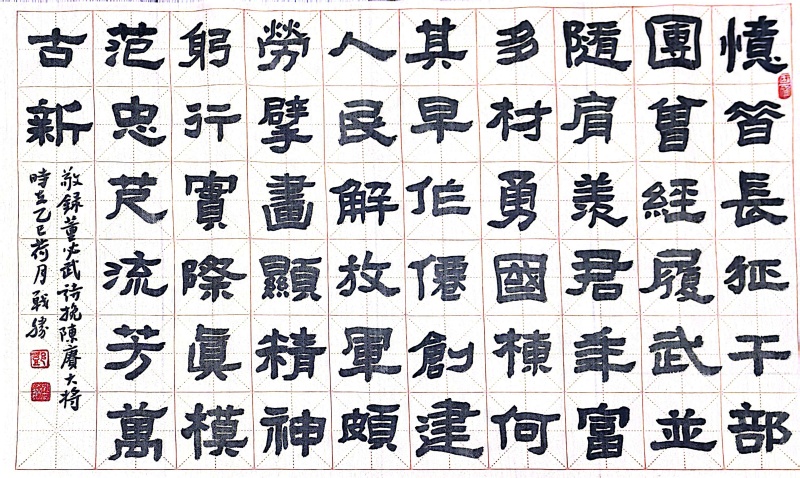 憶昔長征干部
團曾經履武並
隨肩羨君年富
多材勇國棟何
其早作僊創建
人民解放軍頗
勞擘畫顯精神
躬行實際眞模
范忠荩流芳萬
古新
敬録董必武詩挽陳賡大将
時在乙巳荷月戰勝